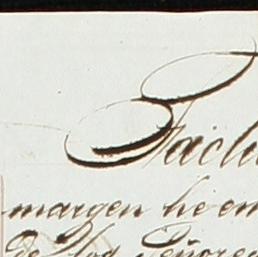 Factu
margen he em
de los Señores